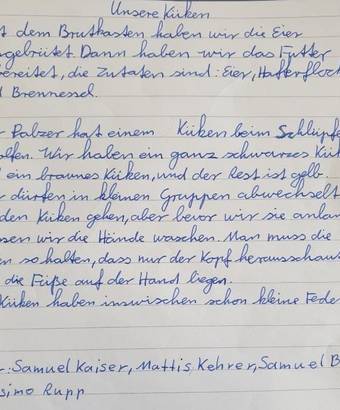 Unsere Küken
t dem Brutkasten haben wir die Eier
sgebrütet. Dann haben wir das Futter
ereitet, die Zutaten sind: Eier, Haferflock
d Brennessel.
r Palzer hat einem Küken beim Schlüpfe
olfen. Wir haben ein ganz schwarzes Kük
ein braunes Küken, und der Rest ist gelb.
r dürfen in kleinen Gruppen abwechselt
den Küken gehen, aber bevor wir sie anlan
sen wir die Hände waschen. Man muss die
en so halten, dass nur der Kopf herausschau
die Füße auf der Hand liegen.
Küken haben inswischen schon kleine Feder
r: Samuel Kaiser, Mattis Kehrer, Samuel B
simo Rupp